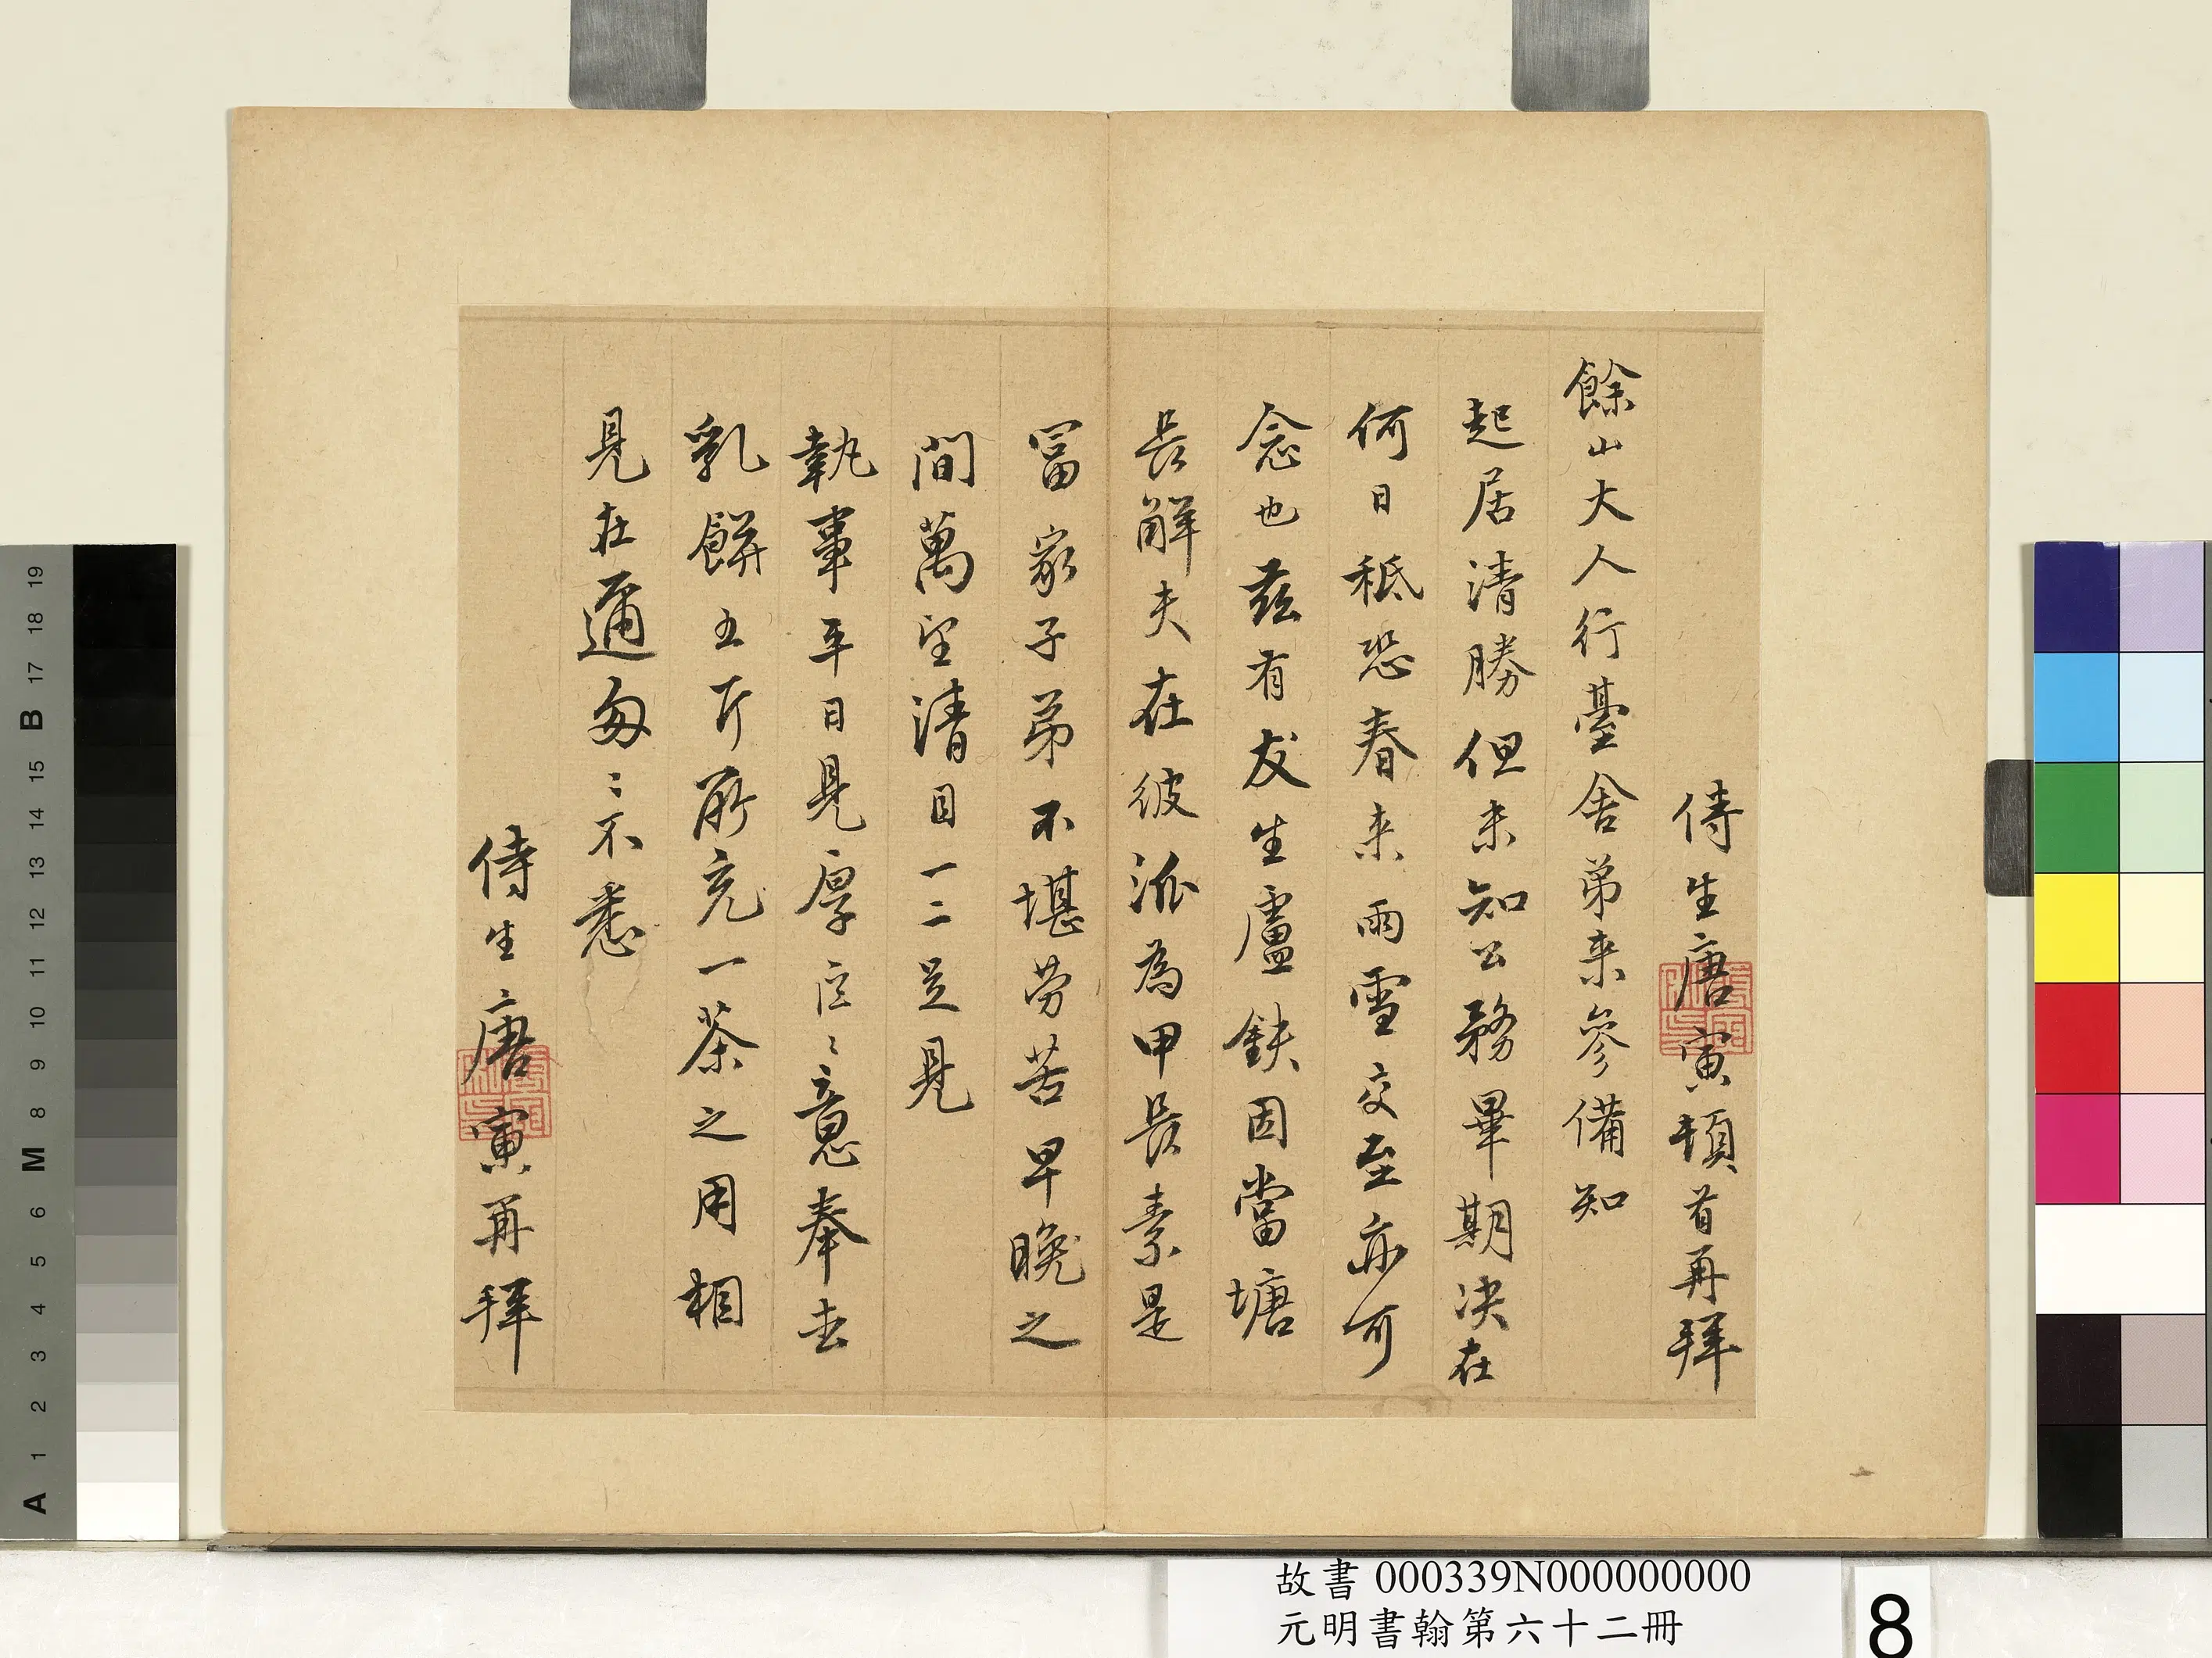 侍生唐寅頓首再拜
餘山大人行臺舍弟来參備知
起居清勝但未知公務畢期決在
何日秪恐春来雨雪交至亦可
念也茲有友生盧鈇因當塘
長解夫在彼派為甲長素是
冨家子弟不堪劳苦早晚之
間萬望清目一二足見
執事平日見厚区〻意奉去
乳餅五斤所充一茶之用相
見在邇匆〻不悉
侍生唐寅再拜
故書 000339N000000000
元明書翰第六十二冊
8
19
18
17
B
16
15
14
13
12
11
10
9
8
M
6
5
4
3
2
1
A